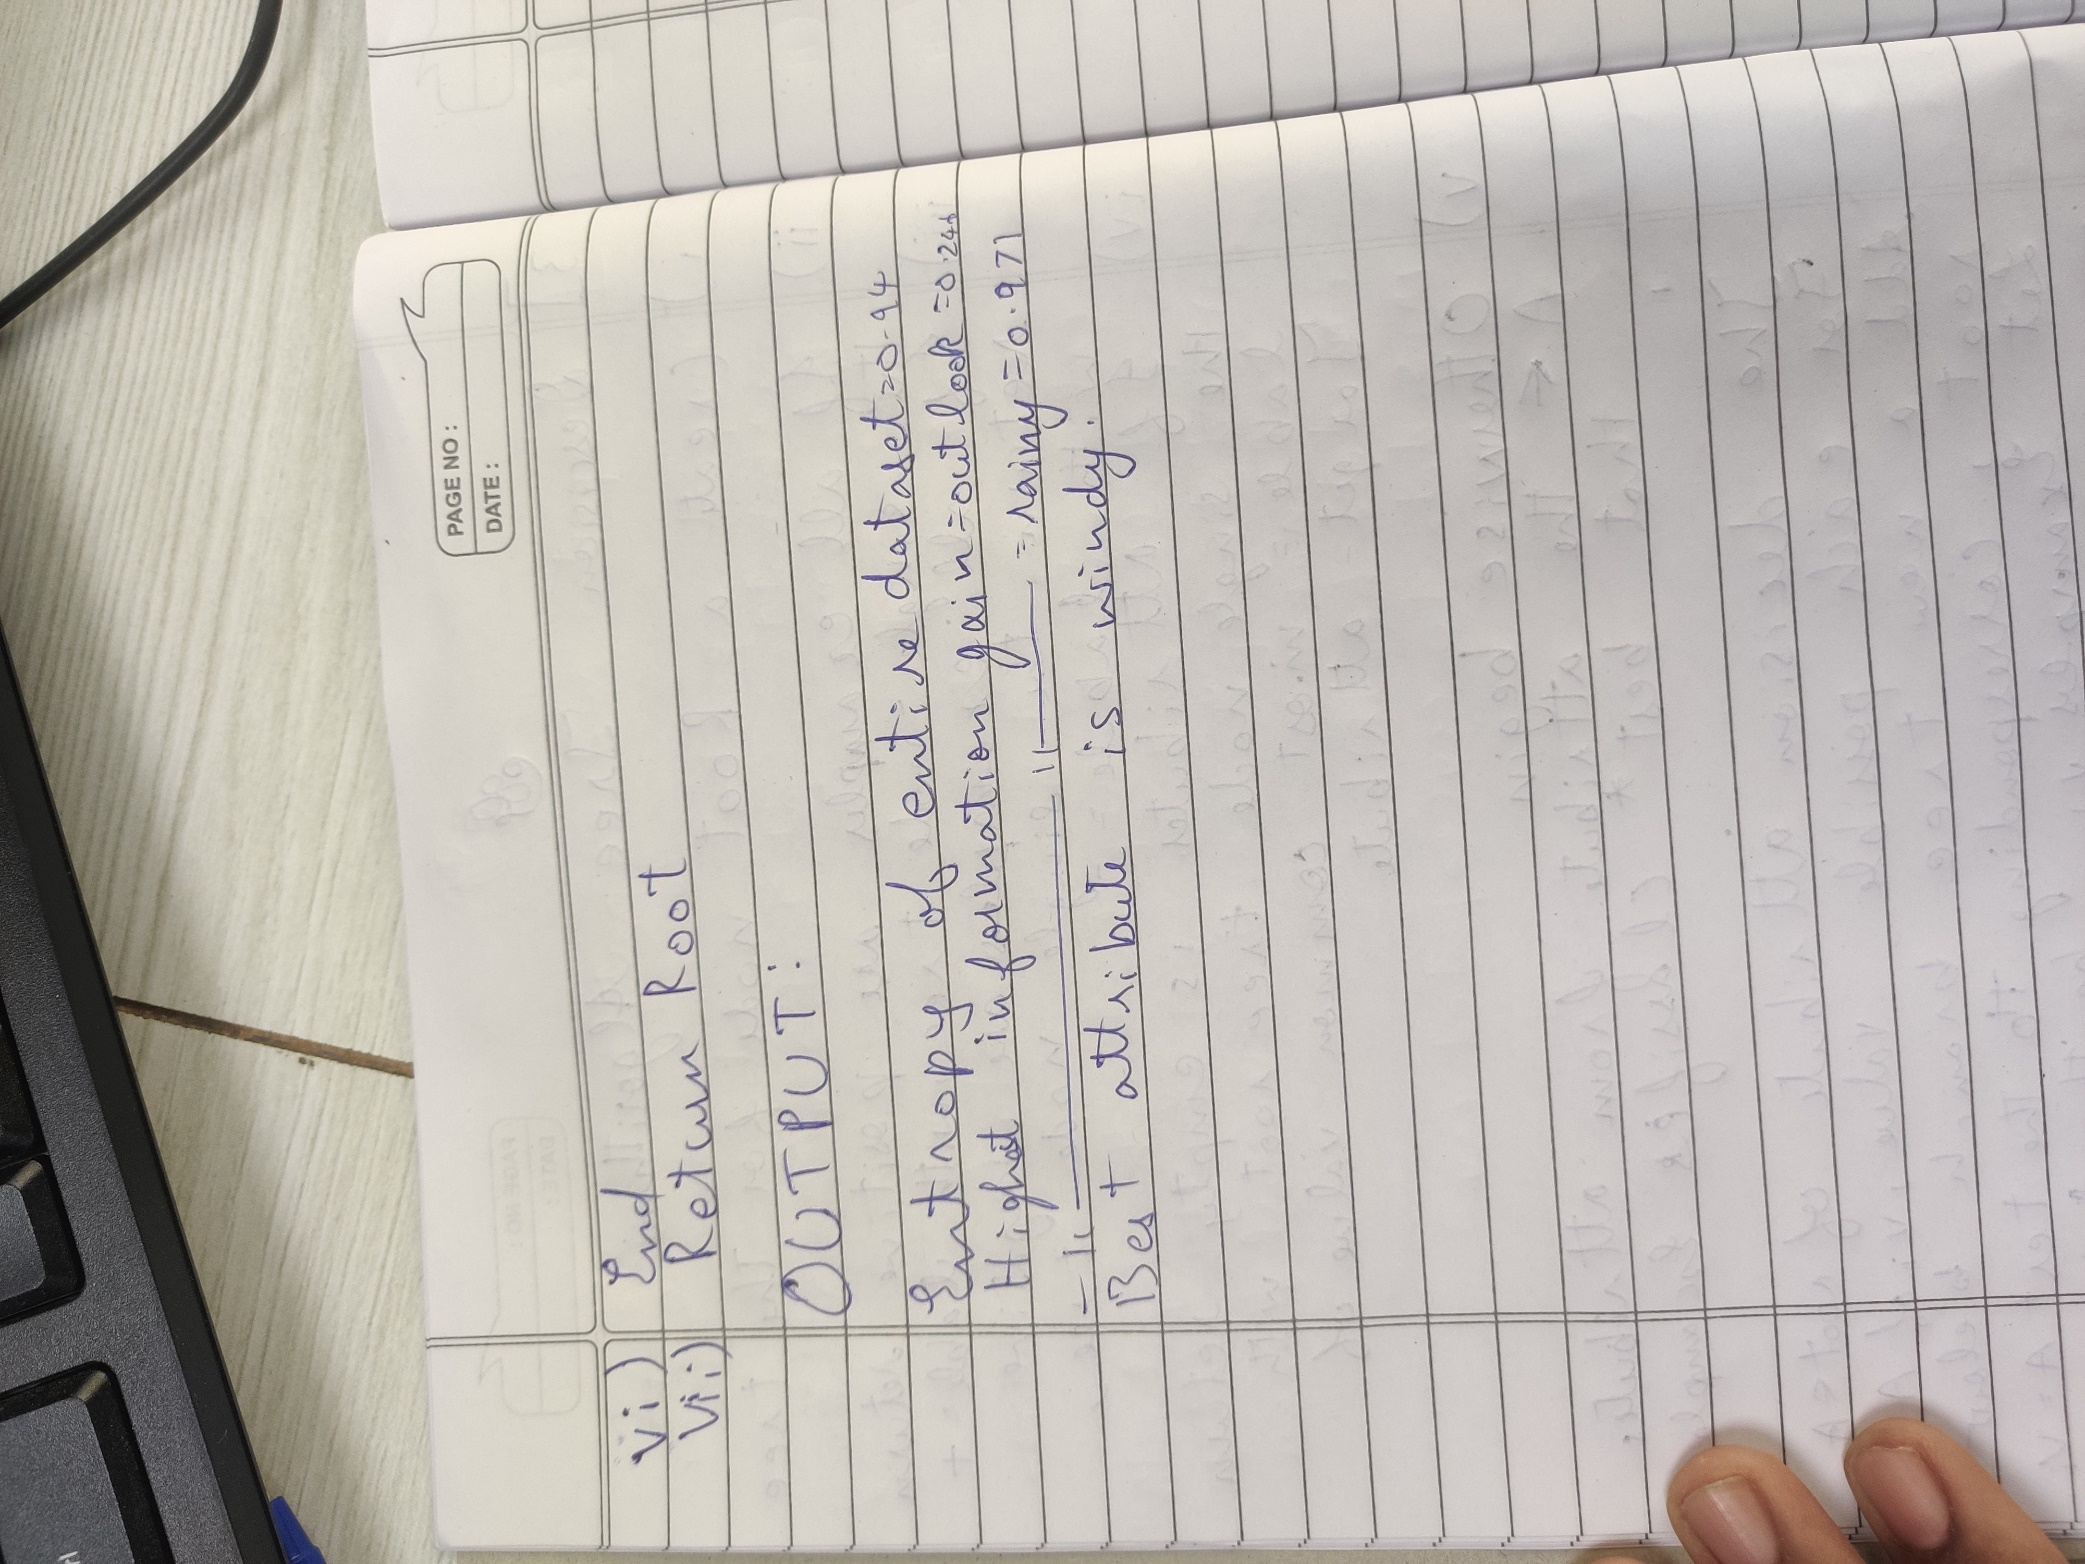 PAGE NO :
DATE :
vi) End
vii) Return Root
OUTPUT :
Entropy of entire dataset=0.94
Highest information gain=outlook=0.246
-11———11——— = rainy=0.971
Best attribute is windy.